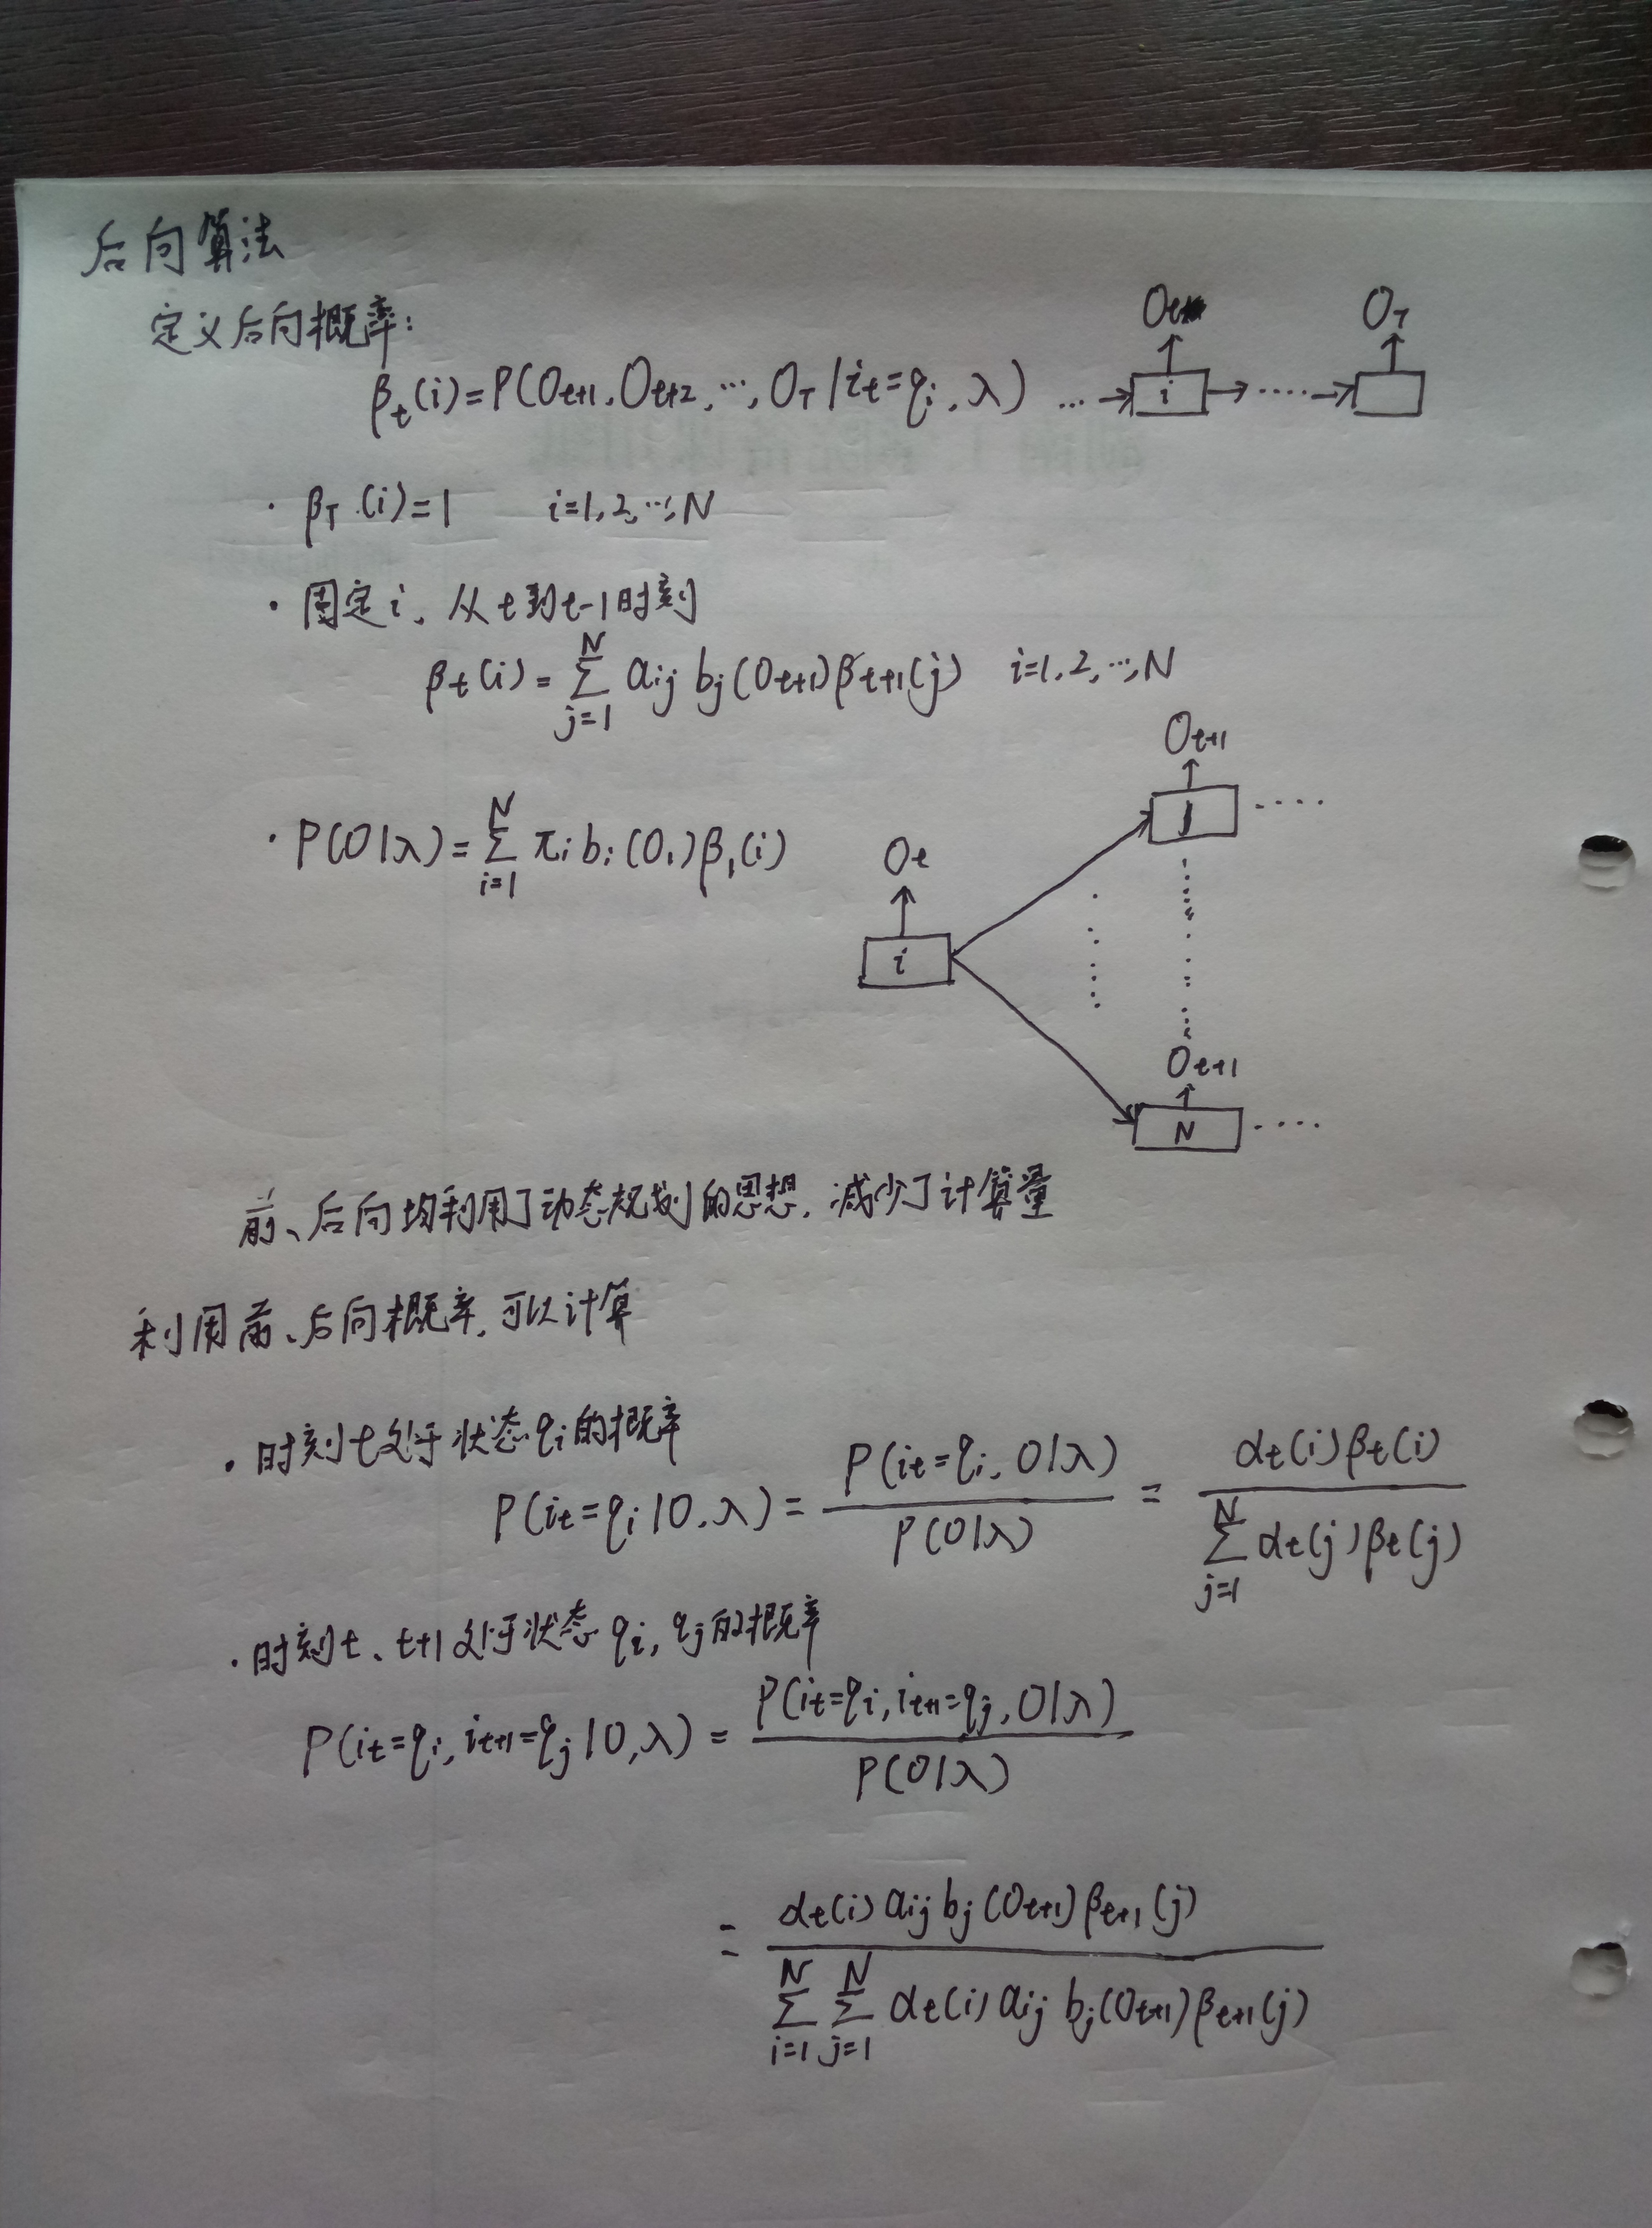 后向算法
定义后向概率:
βt(i)=P(Ot+1,Ot+2,…,OT|it=qi,λ) …→ i →……→
Ot OT
· βT(i)=1 i=1,2,…,N
· 固定i,从t到t-1时刻
βt(i)=∑_{j=1}^{N} aij bj(Ot+1)βt+1(j) i=1,2,…,N
· P(O|λ)=∑_{i=1}^{N} πi bi(O1)β1(i)
Ot+1
Ot
i
Ot+1
N
前、后向均利用了动态规划的思想,减少了计算量
利用前、后向概率,可以计算
· 时刻t处于状态qi的概率
P(it=qi|O,λ)= P(it=qi,O|λ) / P(O|λ) = αt(i)βt(i) / ∑_{j=1}^{N} αt(j)βt(j)
· 时刻t、t+1处于状态qi,qj的概率
P(it=qi,it+1=qj|O,λ)= P(it=qi,it+1=qj,O|λ) / P(O|λ)
= αt(i)aij bj(Ot+1)βt+1(j) / ∑_{i=1}^{N} ∑_{j=1}^{N} αt(i)aij bj(Ot+1)βt+1(j)